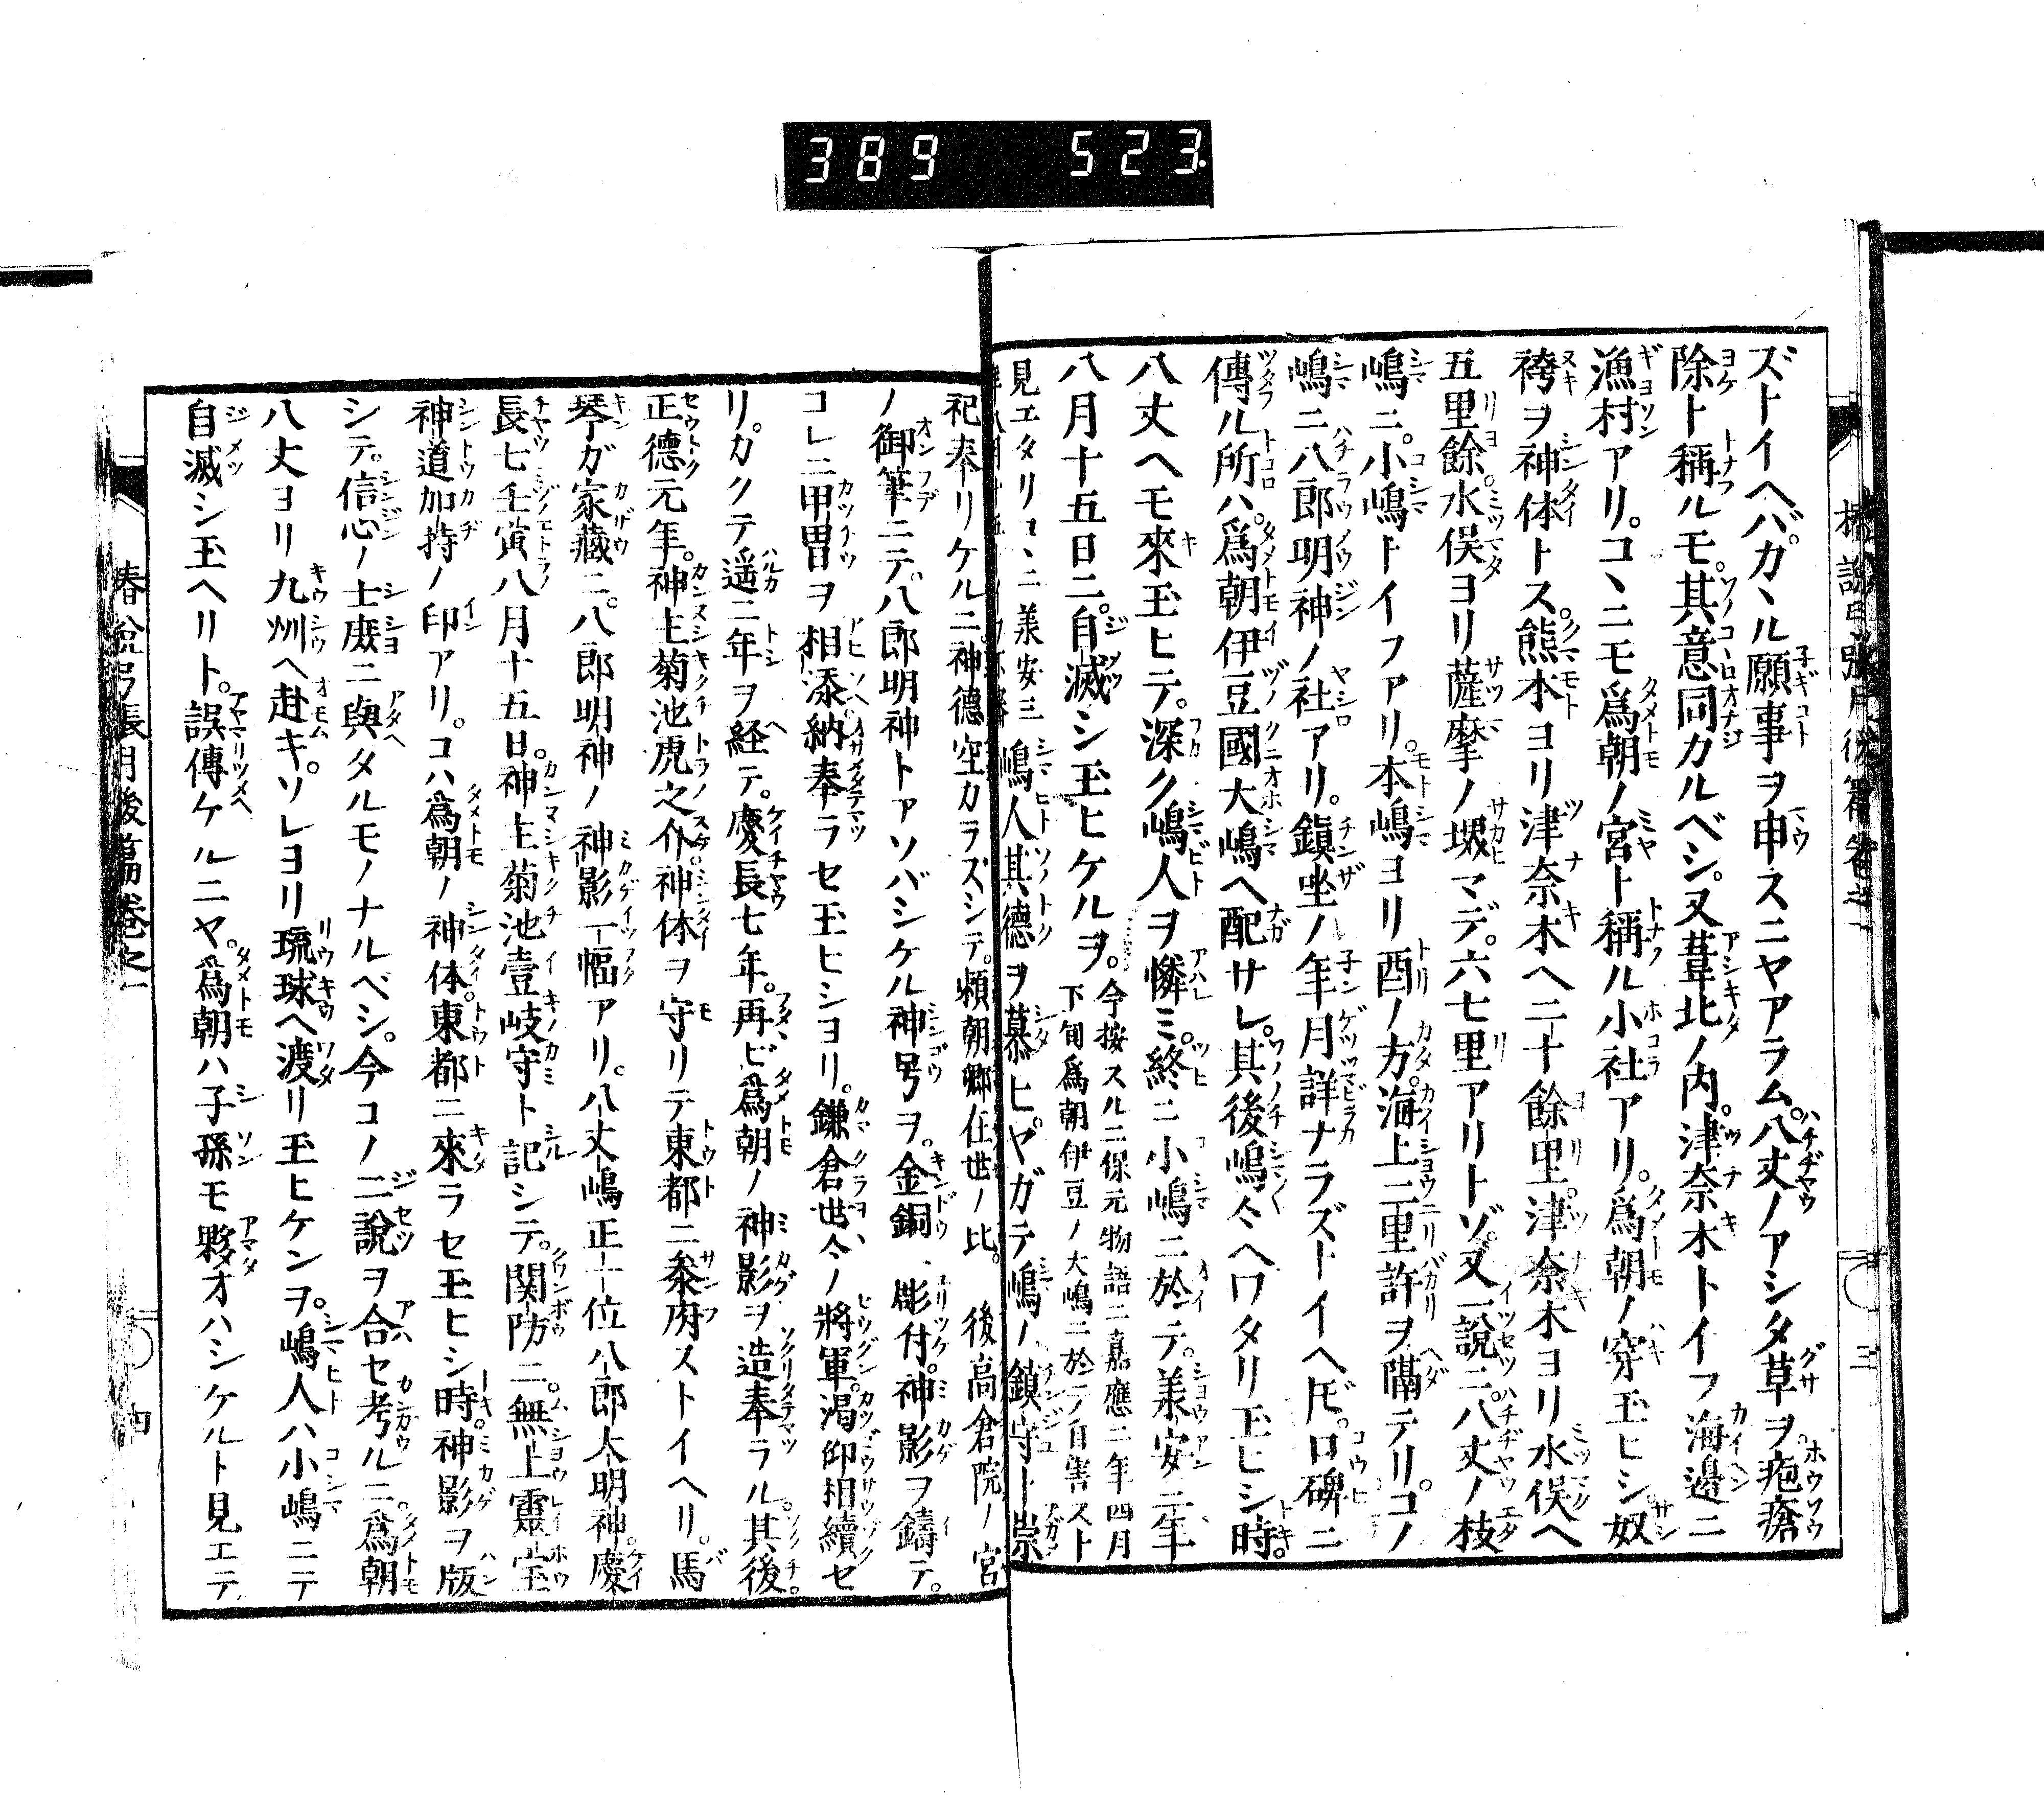 389 523
ズトイヘバ。カヽル願事ヲ申スニヤアラム。八丈ノアシタ草ヲ。疱瘡
除ト稱ルモ。其意同カルベシ。又葦北ノ内。津奈木トイフ海邉ニ
漁村アリ。コヽニモ爲朝ノ宮ト稱ル小社アリ。爲朝ノ穿玉ヒシ。奴
袴ヲ神体トス。熊本ヨリ津奈木ヘ二十餘里。津奈木ヨリ水俣ヘ
五里餘。水俣ヨリ薩摩ノ堺マデ。六七里アリトゾ。又一説ニ。八丈ノ枝
嶋ニ。小嶋トイフアリ。本嶋ヨリ酉ノ方。海上二里許ヲ隔テリ。コノ
嶋ニ八郎明神ノ社アリ。鎭坐ノ年月詳ナラズトイヘドモ。口碑ニ
傳ル所ハ。爲朝伊豆國大嶋ヘ配サレ。其後嶋々ヘワタリ玉ヒシ時。
八丈ヘモ來玉ヒテ。深ク嶋人ヲ憐ミ。終ニ小嶋ニ於テ。美安二年
八月十五日ニ。自滅シ玉ヒケルヲ。今按スルニ保元物語ニ嘉應二年四月
下旬爲朝伊豆ノ大嶋ニ於テ自害スト
見エタリコヽニ美安三
嶋人其德ヲ慕ヒ。ヤガテ嶋ノ鎮守ト崇
祀奉リケルニ。神德空カラズシテ。頼朝卿在世ノ比。後高倉院ノ宮
ノ御筆ニテ。八郎明神トアソバシケル神号ヲ。金銅ニ彫付。神影ヲ鑄テ。
コレニ甲冑ヲ相添。納奉ラセ玉ヒシヨリ。鎌倉世々ノ將軍。渇仰相續セ
リ。カクテ遥ニ年ヲ経テ。慶長七年。再ビ爲朝ノ神影ヲ造奉ラル。其後
正德元年。神主菊池虎之介。神体ヲ守リテ東都ニ叅府ストイヘリ。馬
琴ガ家藏ニ。八郎明神ノ神影一幅アリ。八丈嶋正一位八郎大明神。慶
長七壬寅八月十五日。神主菊池壹岐守ト記シテ。関防ニ。無上靈宝
神道加持ノ印アリ。コハ爲朝ノ神体。東都ニ來ラセ玉ヒシ時。神影ヲ版
シテ。信心ノ士庶ニ與タルモノナルベシ。今コノ二說ヲ合セ考ルニ。爲朝
八丈ヨリ九州ヘ赴キ。ソレヨリ琉球ヘ渡リ玉ヒケンヲ。嶋人ハ小嶋ニテ
自滅シ玉ヘリト。誤傳ケルニヤ。爲朝ハ子孫モ夥オハシケルト見エテ
椿説弓張月後篇卷之一
四